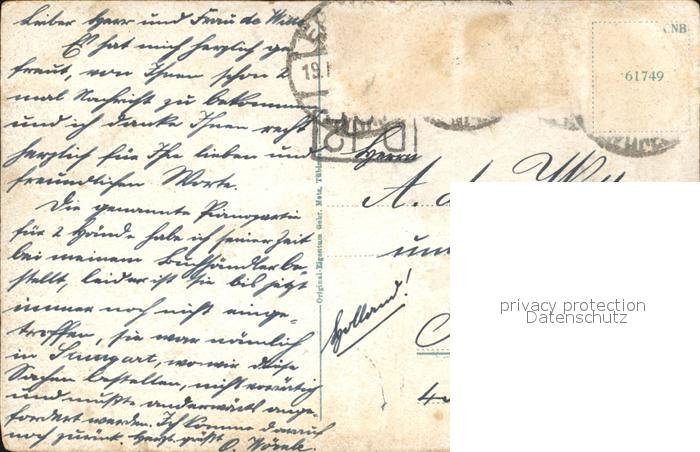 Lieber Herr und Frau de Witte
Es hat mich herzlich ge-
freut, von Ihnen schon 2
mal Nachricht zu bekommen
und ich danke Ihnen recht
herzlich für Ihre lieben und
freundlichen Worte.
Die genannte Pianopartie
für 2 Hände habe ich seiner Zeit
bei meinem Buchhändler be-
stellt, leider ist sie bis jetzt
immer noch nicht einge-
troffen, sie war nämlich
in Stuttgart, wo wir diese
Sachen bestellen, nicht vorrätig
und mußte anderwärts ange-
fordert werden. Ich komme darauf
noch zurück. Herzl. grüßt
Original-Eigentum Gebr. Metz, Tübingen
CNB
61749
Herrn
A. d
un
Holland!
privacy protection
Datenschutz